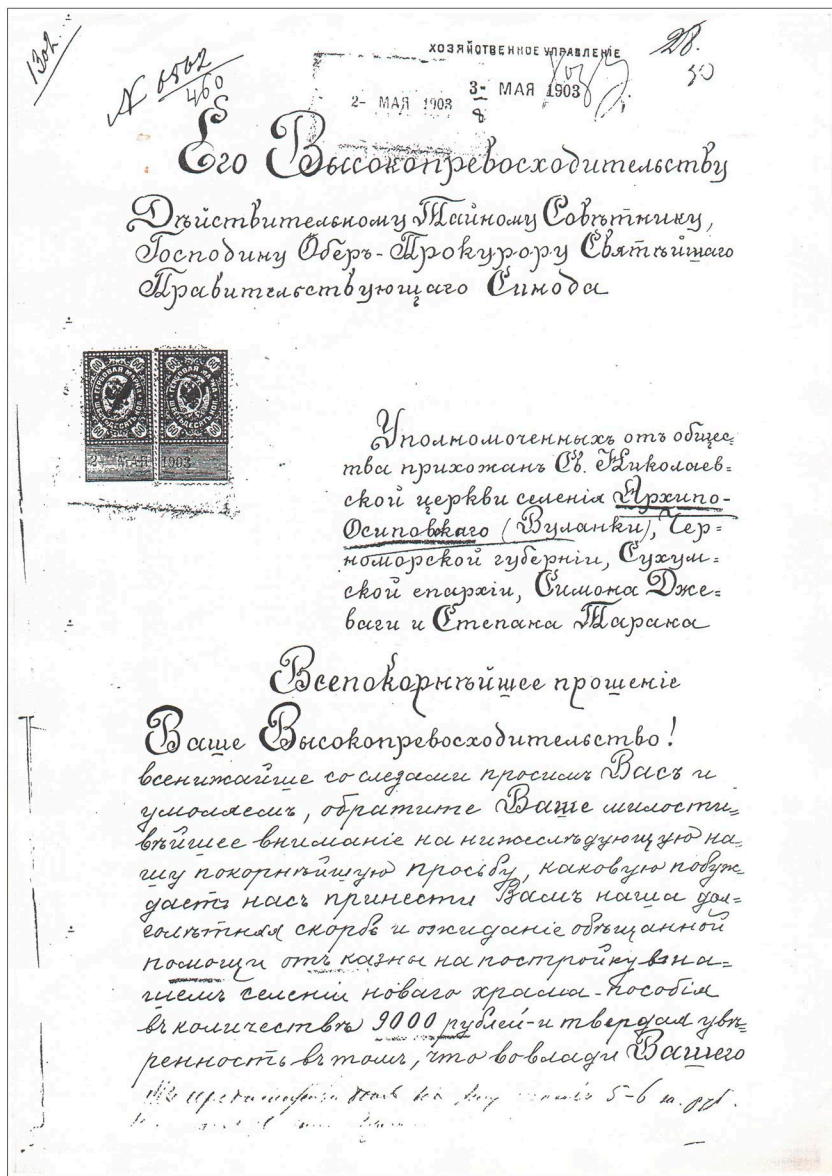 1302.
N 6562
460
ХОЗЯЙСТВЕННОЕ УПРАВЛЕНІЕ
28.
50
2- МАЯ 1903
3- МАЯ 1903
8
Его Высокопревосходительству
Дѣйствительному Тайному Совѣтнику,
Господину Оберъ-Прокурору Святѣйшаго
Правительствующаго Синода
60 60 60 60
ГЕРБОВАЯ МАРКА
ШЕСТЬДЕСЯТЪ КОП.
60 60 60 60
ГЕРБОВАЯ МАРКА
ШЕСТЬДЕСЯТЪ КОП.
2- МАЯ 1903
Уполномоченныхъ отъ общес=
тва прихожанъ Св. Николаев=
ской церкви селенія Архипо-
Осиповскаго (Вуланки), Чер=
номорской губерніи, Сухум=
ской епархіи, Симона Дже=
ваги и Степана Тарака
Всепокорнѣйшее прошеніе
Ваше Высокопревосходительство!
всенижайше со слезами просимъ Васъ и
умоляемъ, обратите Ваше милости=
вѣйшее вниманіе на нижеслѣдующую на=
шу покорнѣйшую просьбу, каковую побуж=
даетъ насъ принести Вамъ наша дол=
голѣтняя скорбь и ожиданіе обѣщанной
помощи отъ казны на постройку въ на=
шемъ селеніи новаго храма-пособія
въ количествѣ 9000 рублей-и твердая увѣ=
ренность въ томъ, что во влади Вашего
5-6 т. руб.